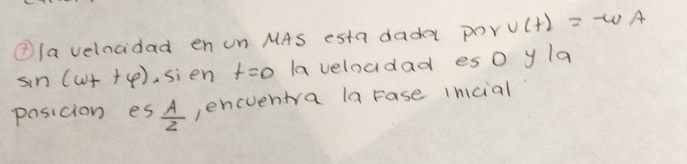 ⑦ la velocidad en un MAS esta dada por v(t) = -ω A
sin (ωt +φ). si en t=0 la velocidad es 0 y la
posicion es A/2, encuentra la Fase inicial